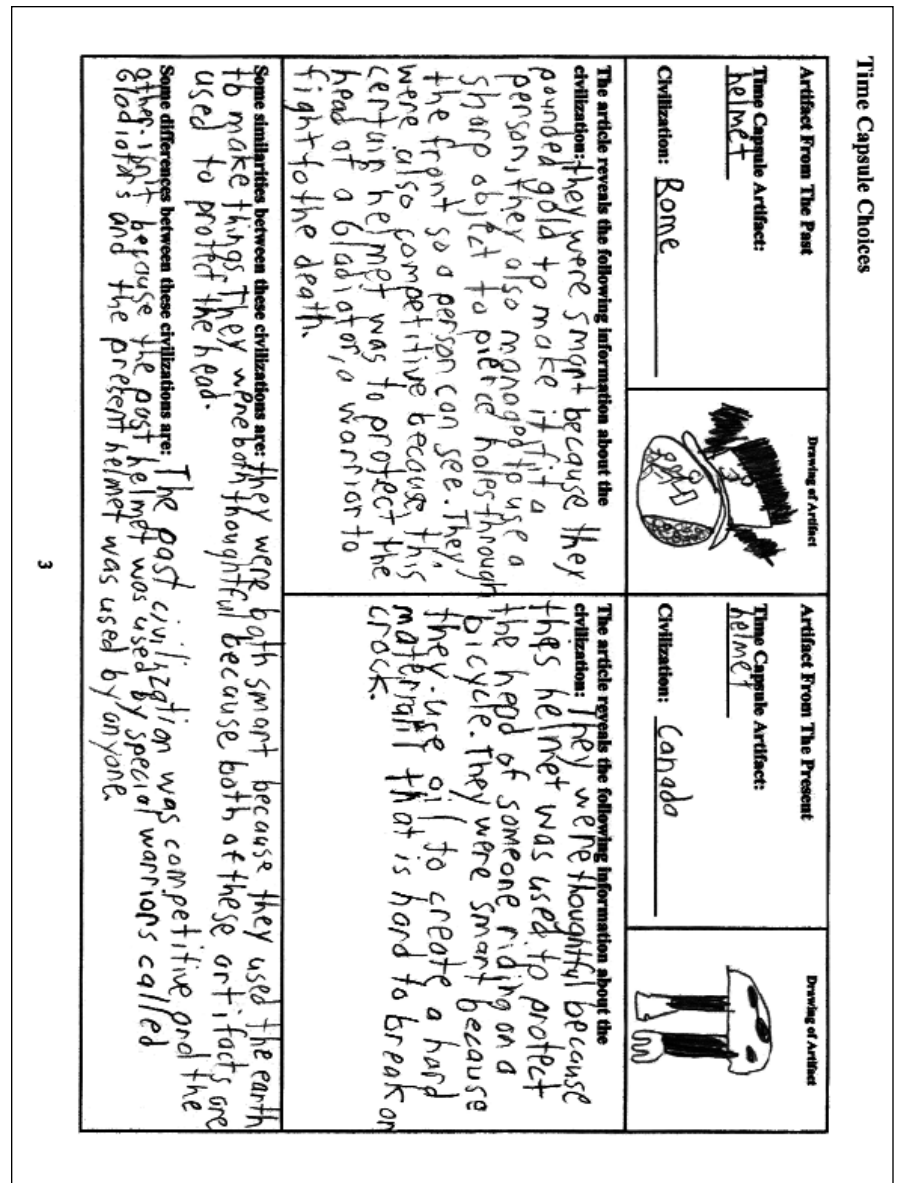 Time Capsule Choices
Artifact From The Past
Time Capsule Artifact:
helmet
Civilization: Rome
Drawing of Artifact
Artifact From The Present
Time Capsule Artifact:
helmet
Civilization: Canada
Drawing of Artifact
The article reveals the following information about the
civilization: they were smart because they
pounded gold to make it fit a
person, they also managed to use a
sharp object to pierce holes through
the front so a person can see. They
were also competitive because, this
certain helmet was to protect the
head of a Gladiator, a warrior to
fight to the death.
The article reveals the following information about the
civilization: They were thoughtful because
this helmet was used to protect
the head of someone riding on a
bicycle. They were smart because
they use oil to create a hard
materail that is hard to break or
crack.
Some similarities between these civilizations are: they were both smart because they used the earth
to make things. They were both thoughtful because both of these artifacts are
used to protect the head.
Some differences between these civilizations are: The past civilization was competitive and the
other isn't because the past helmet was used by special warriors called
Gladiators and the present helmet was used by anyone.
3